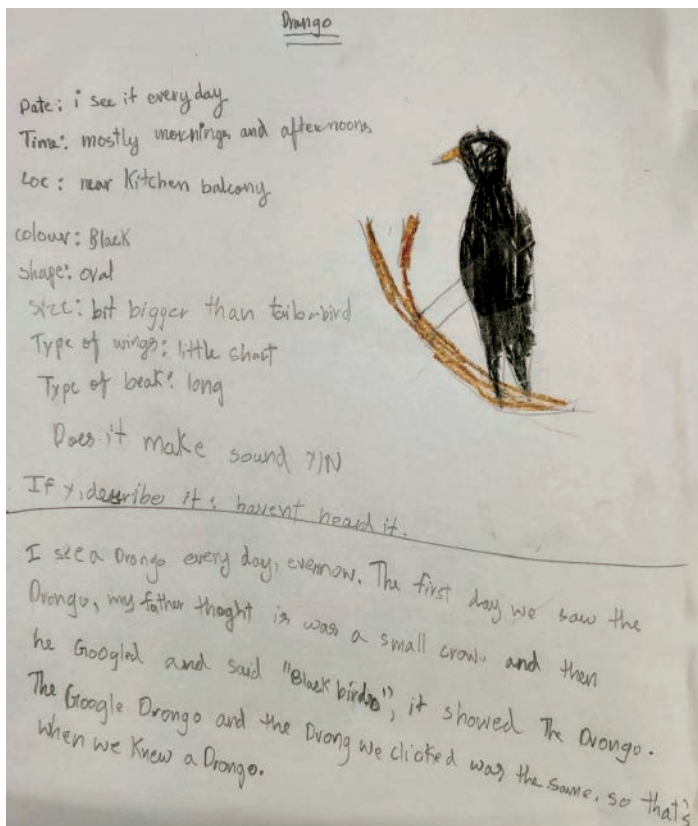 Drongo
Date: i see it every day
Time: mostly mornings and afternoons
Loc: near Kitchen balcony
colour: Black
shape: oval
size: bit bigger than tailorbird
Type of wings: little short
Type of beak: long
Does it make sound Y/N
If Y, describe it: havent heard it.
I see a Drongo every day, evennow. The first day we saw the
Drongo, my father thoght is was a small crow. and then
he Googled and said "Black birds", it showed The Drongo.
The Google Drongo and the Drong we clicked was the same. so that's
when we Knew a Drongo.